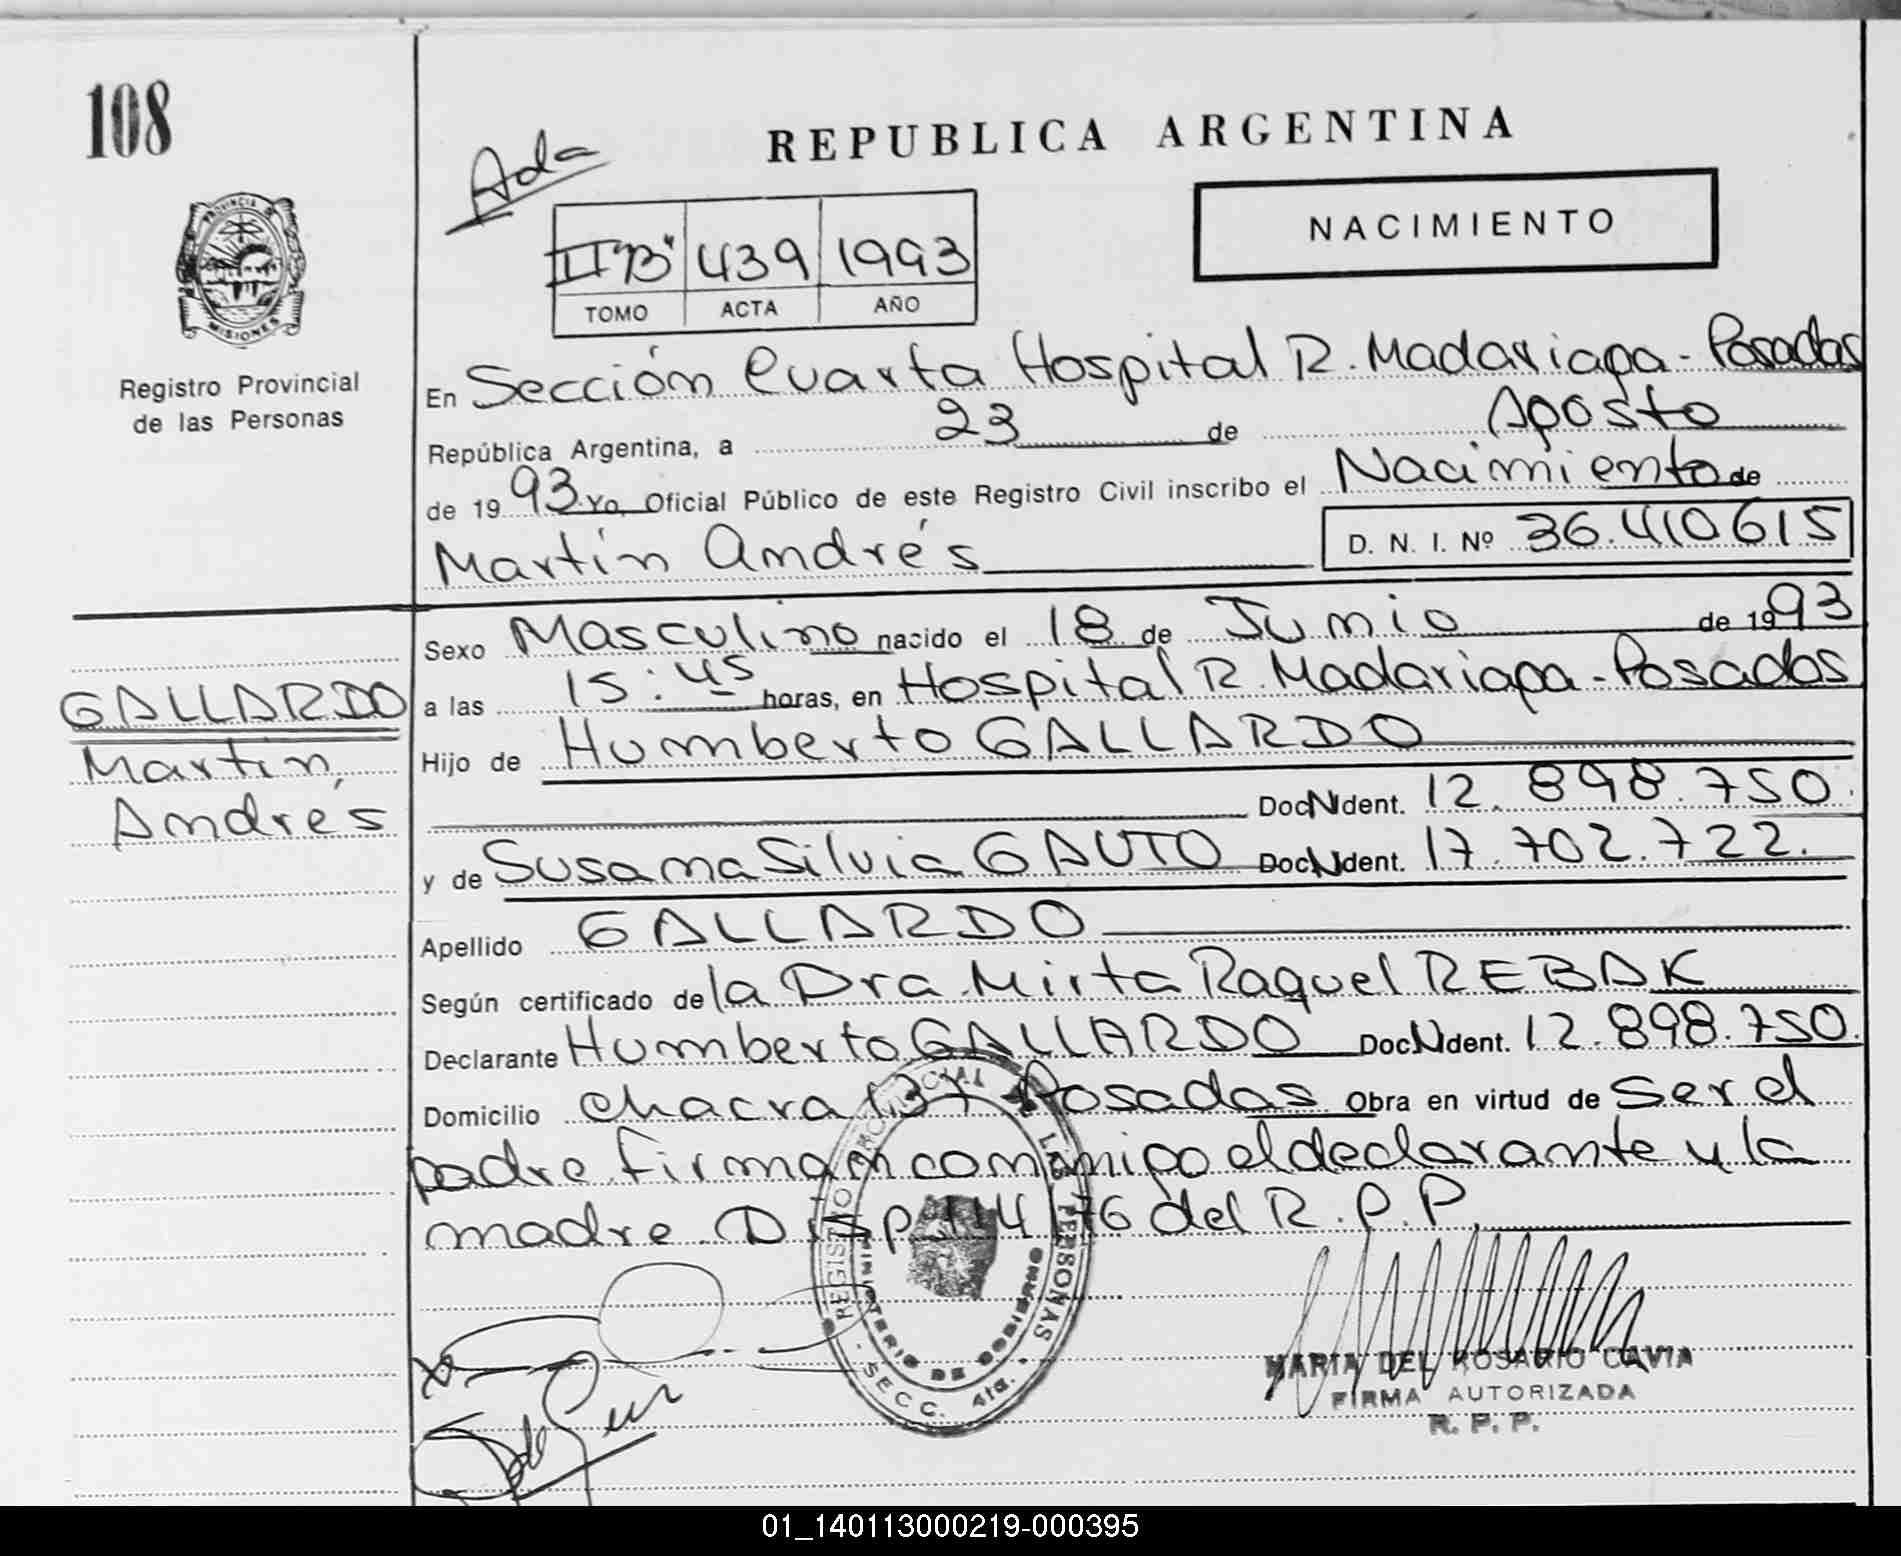 108
REPUBLICA ARGENTINA
Ada
NACIMIENTO
II "B" 439 1993
TOMO ACTA AÑO
PROVINCIA DE
MISIONES
Registro Provincial
de las Personas
En Sección Cuarta Hospital R. Madariaga - Posadas
República Argentina, a 23 de Agosto
de 1993 Yo, Oficial Público de este Registro Civil inscribo el Nacimiento de
Martín Andrés D. N. I. Nº 36.410.615
Sexo Masculino nacido el 18 de Junio de 1993
a las 15:45 horas, en Hospital R. Madariaga - Posadas
Hijo de Humberto GALLARDO
Doc N Ident. 12.898.750.
y de Susana Silvia GAUTO Doc N Ident. 17.702.722.
Apellido GALLARDO
Según certificado de la Dra. Mirta Raquel REBAK
Declarante Humberto GALLARDO Doc N Ident. 12.898.750.
Domicilio chacra 137 Posadas Obra en virtud de ser el
padre. firman conmigo el declarante y la
madre. Disp 114/76 del R.P.P.
GALLARDO
Martín,
Andrés
REGISTRO PROVINCIAL DE LAS PERSONAS
MINISTERIO DE GOBIERNO
SECC. 4ta.
MARIA DEL ROSARIO CAVIA
FIRMA AUTORIZADA
R. P. P.
01_140113000219-000395